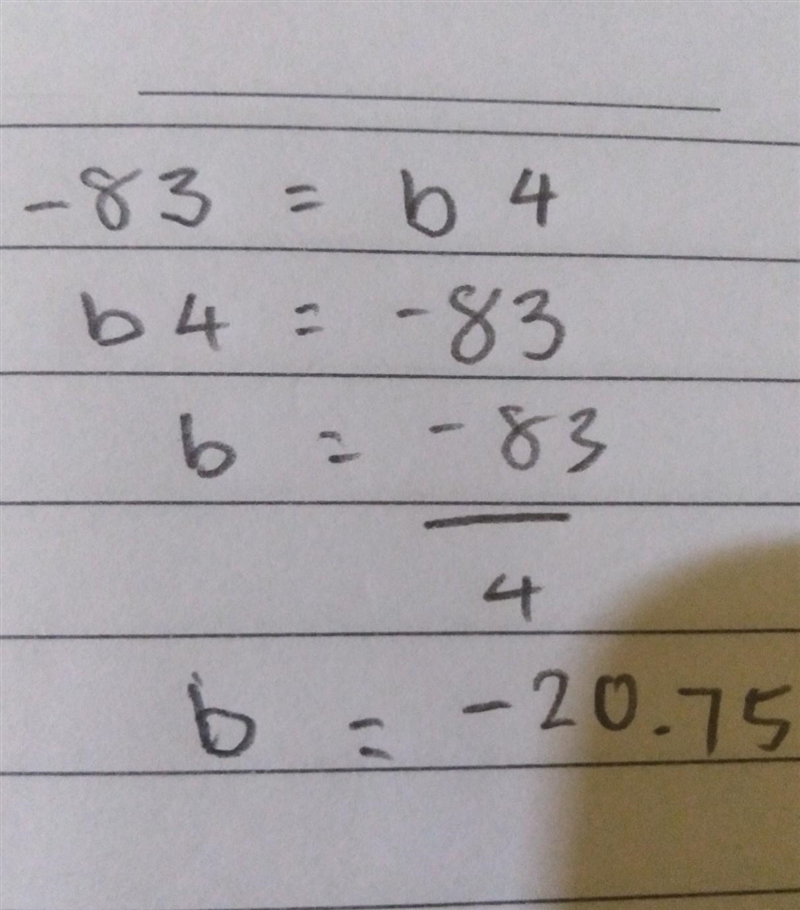 -83 = b 4
b 4 = -83
b = -83
4
b = -20.75